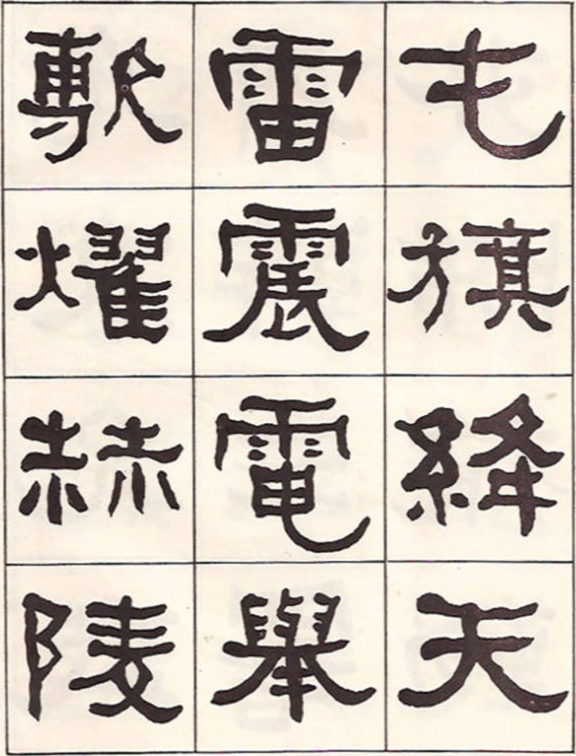 毛旗絳天
雷震電舉
敷燿赫陵